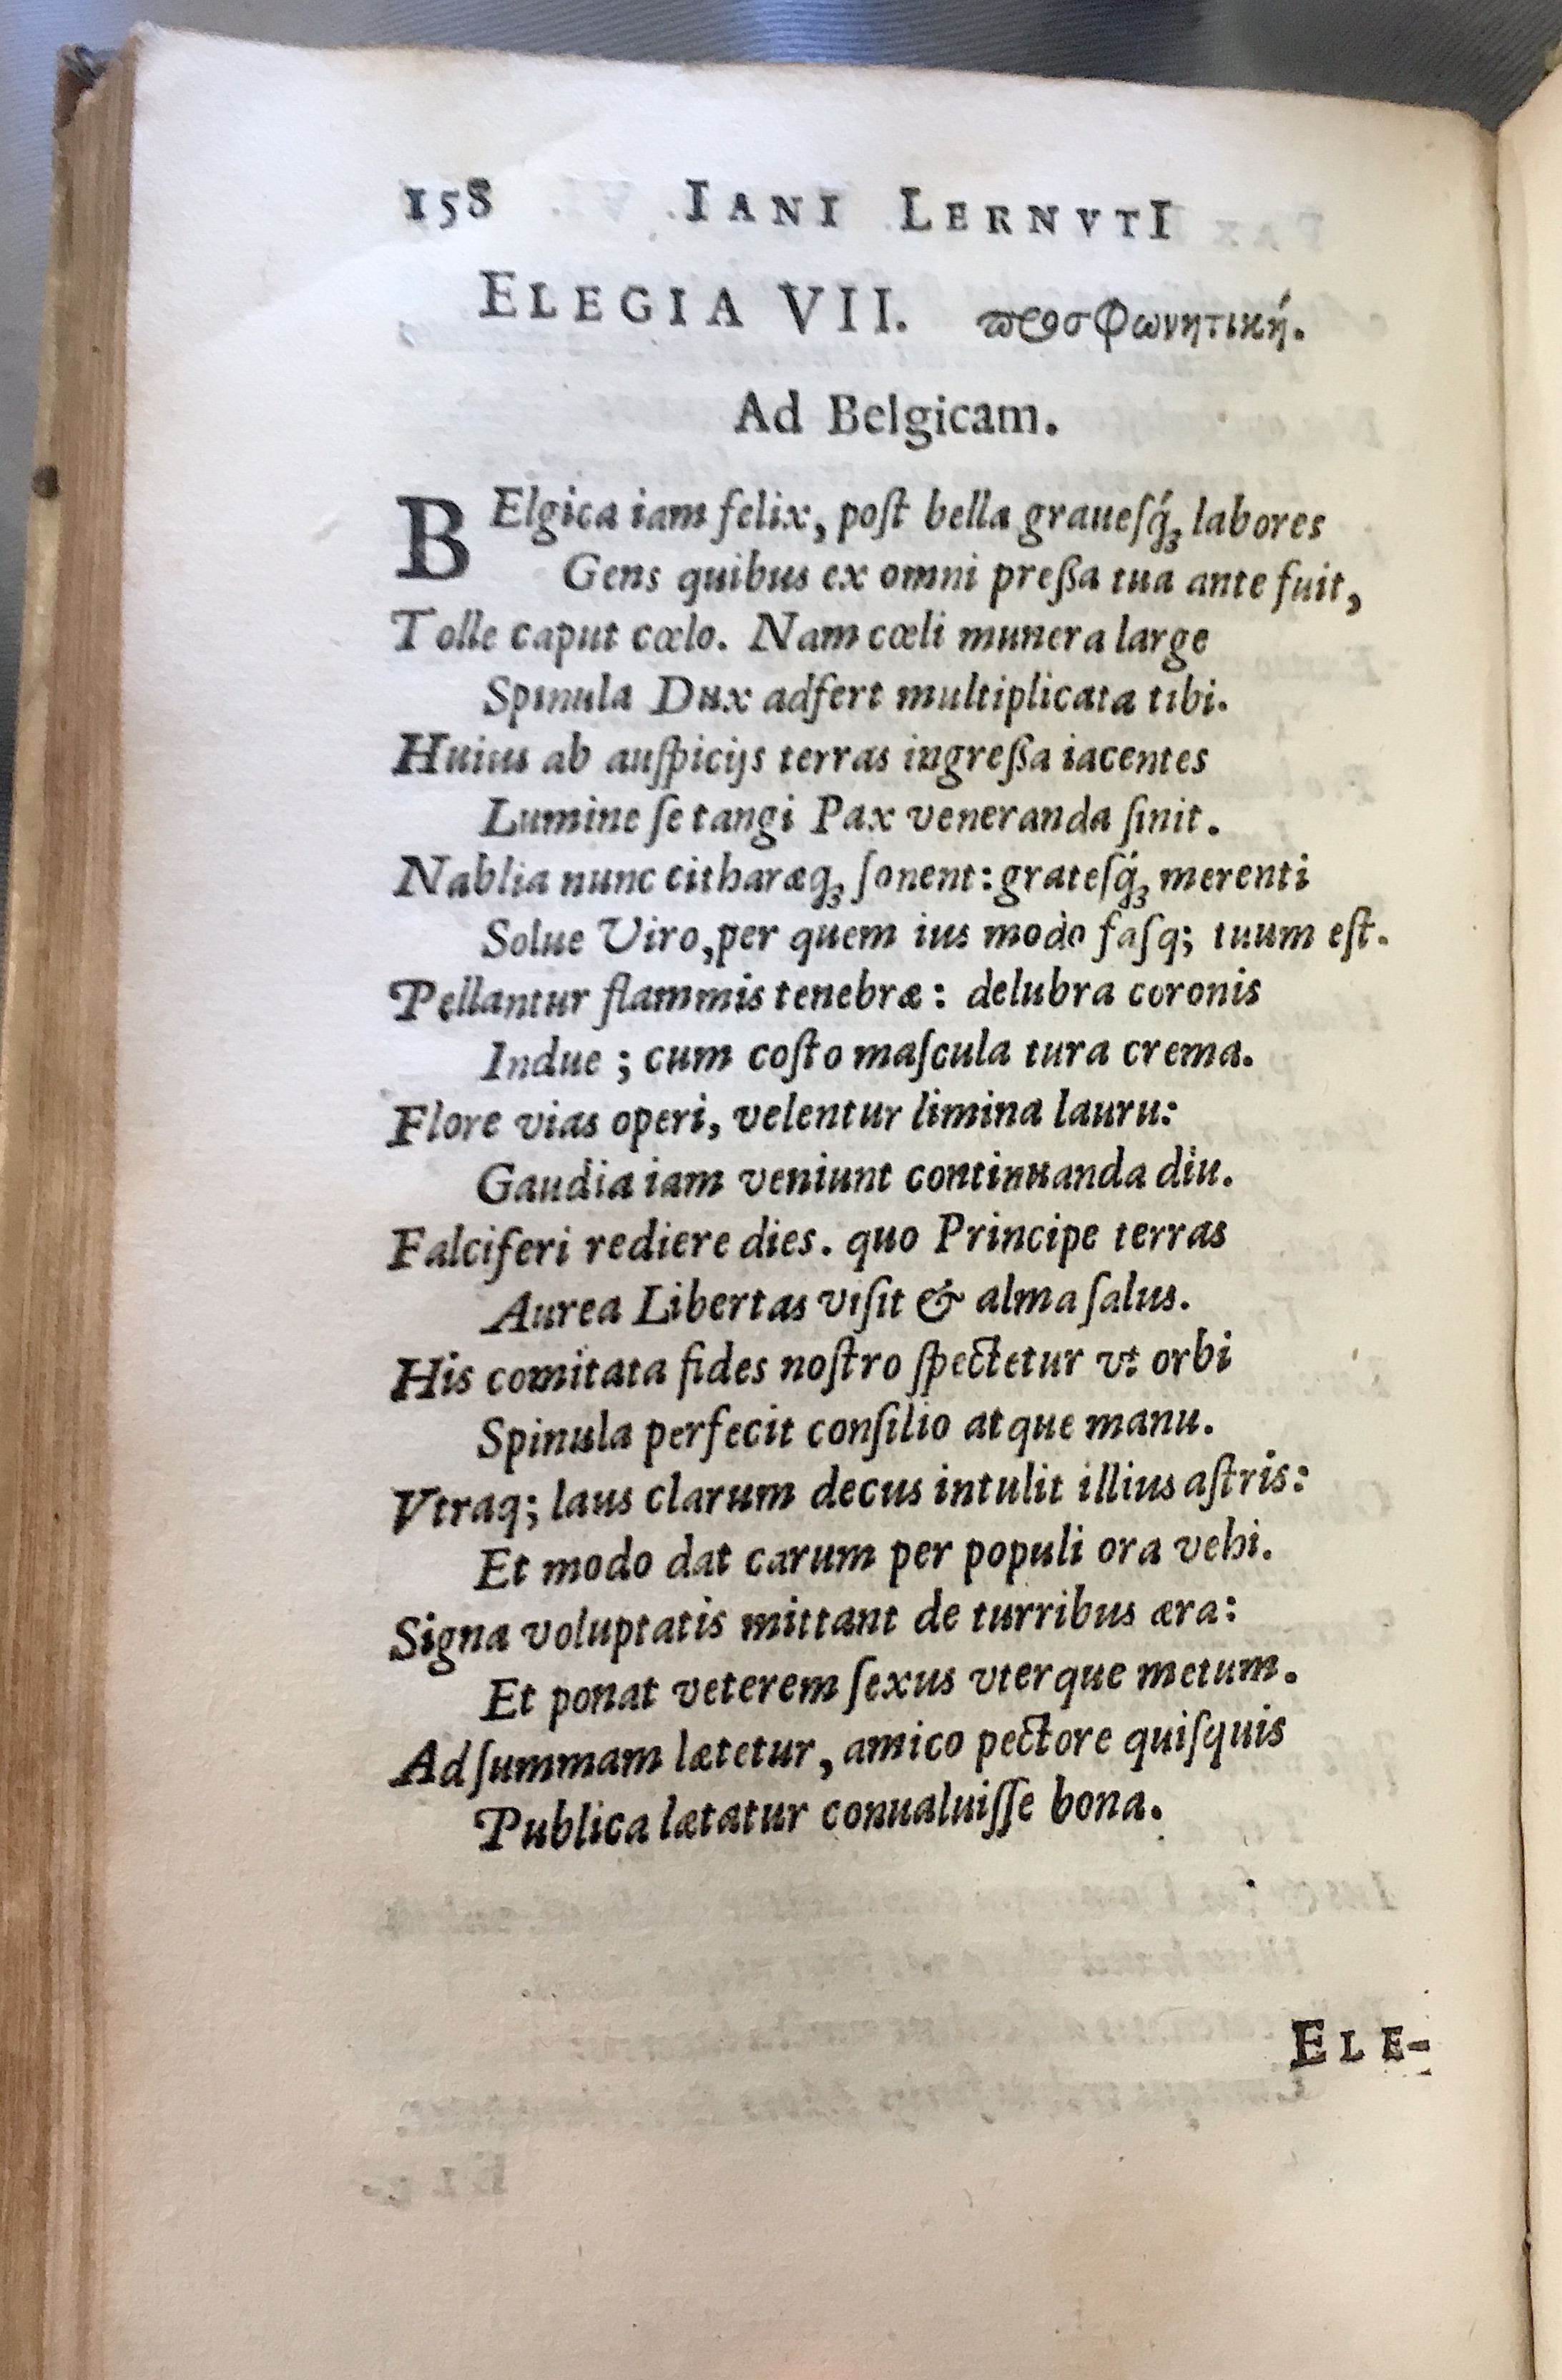 158 IANI LERNVTI
ELEGIA VII. προσφωνητική.
Ad Belgicam.
BElgica iam felix, poſt bella graueſq́ꝫ labores
Gens quibus ex omni preßa tua ante fuit,
Tolle caput cœlo. Nam cœli munera large
Spinula Dux adfert multiplicata tibi.
Huius ab auſpicijs terras ingreßa iacentes
Lumine ſe tangi Pax veneranda ſinit.
Nablia nunc citharæqꝫ ſonent: grateſq́ꝫ merenti
Solue Viro, per quem ius modo faſq; tuum eſt.
Pellantur flammis tenebræ: delubra coronis
Indue; cum coſto maſcula tura crema.
Flore vias operi, velentur limina lauru:
Gaudia iam veniunt continuanda diu.
Falciferi rediere dies. quo Principe terras
Aurea Libertas viſit & alma ſalus.
His comitata fides noſtro ſpectetur vt orbi
Spinula perfecit conſilio atque manu.
Vtraq; laus clarum decus intulit illius aſtris:
Et modo dat carum per populi ora vehi.
Signa voluptatis mittant de turribus æra:
Et ponat veterem ſexus vterque metum.
Ad ſummam lætetur, amico pectore quiſquis
Publica lætatur conualuiſſe bona.
ELE-